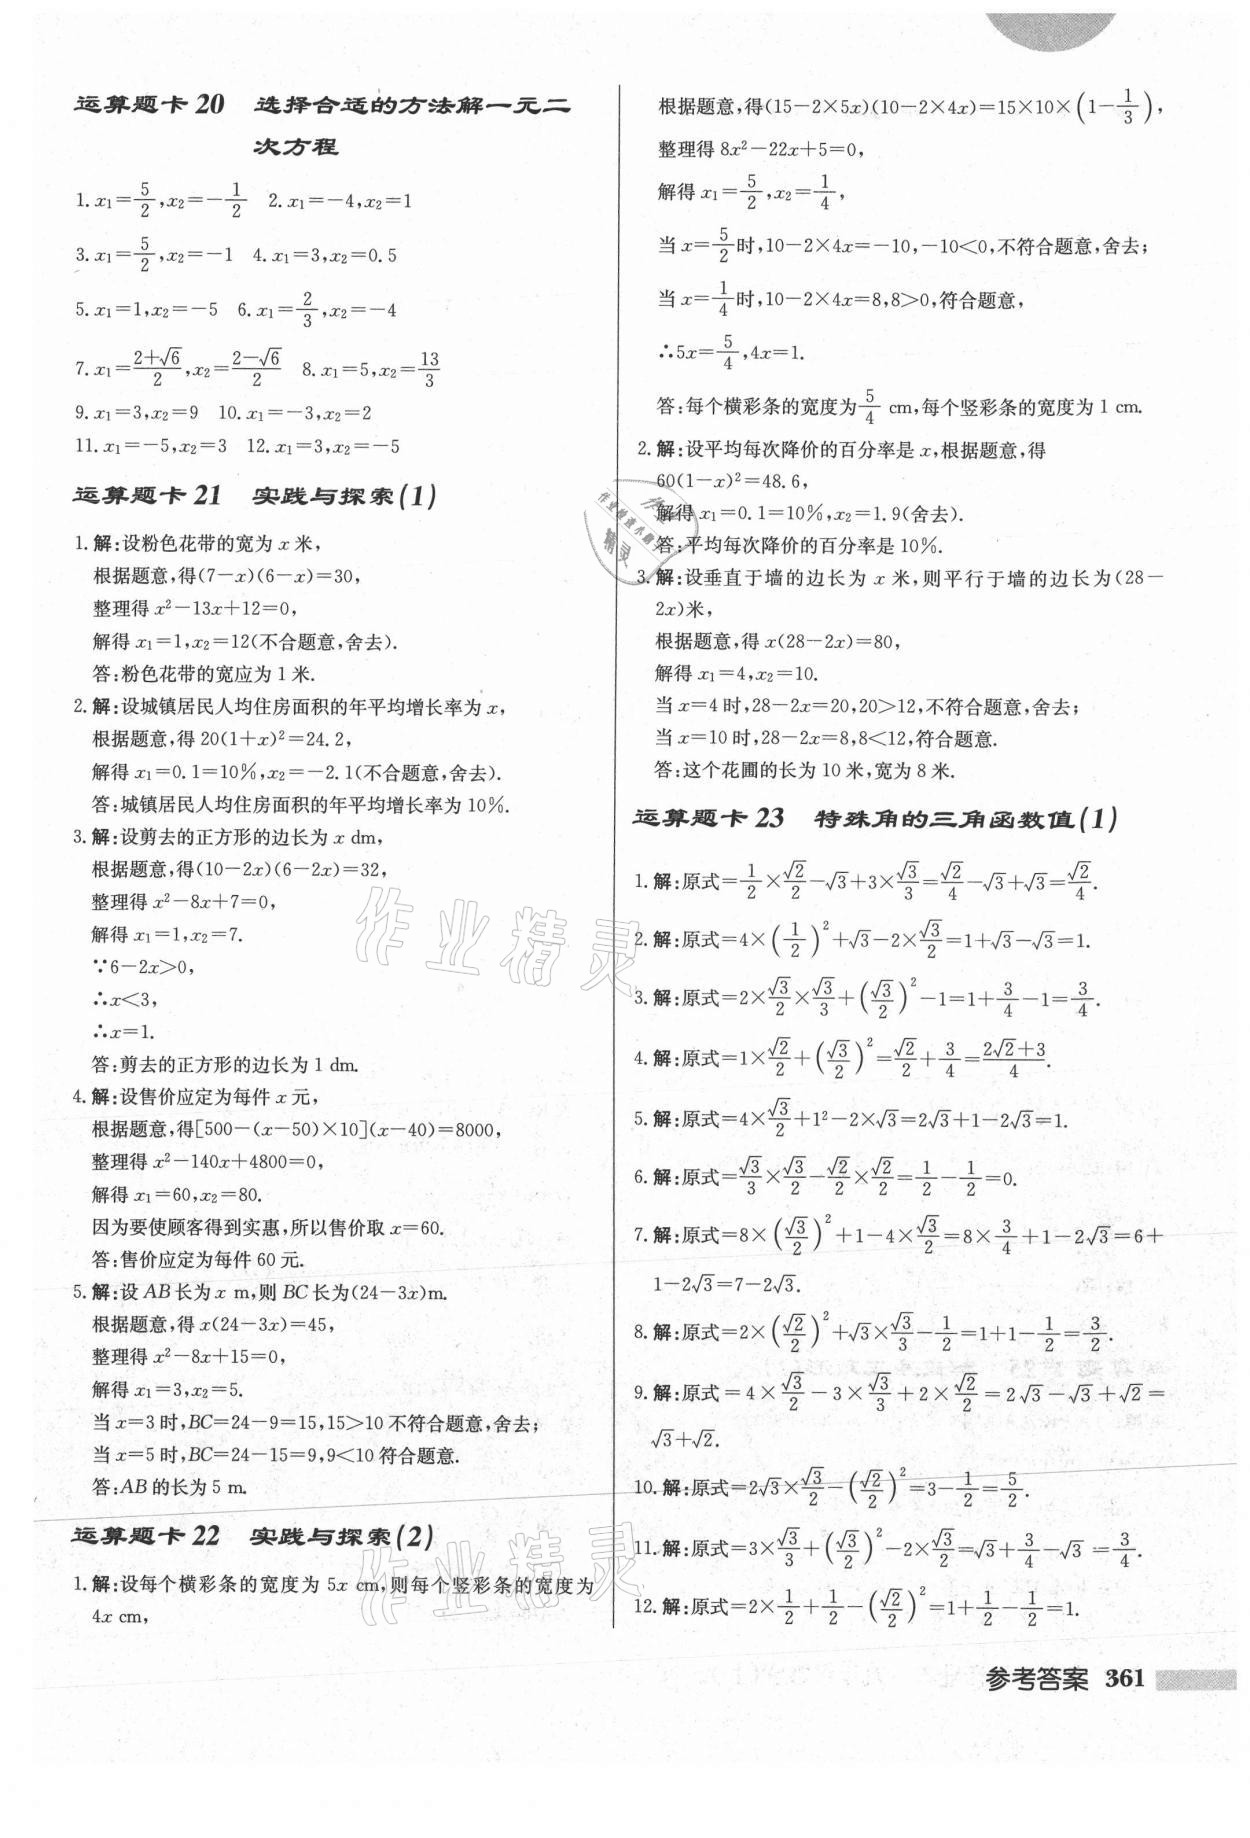 运算题卡 20 选择合适的方法解一元二
次方程
1. x₁=5/2,x₂=-1/2 2. x₁=-4,x₂=1
3. x₁=5/2,x₂=-1 4. x₁=3,x₂=0.5
5. x₁=1,x₂=-5 6. x₁=2/3,x₂=-4
7. x₁=(2+√6)/2,x₂=(2-√6)/2 8. x₁=5,x₂=13/3
9. x₁=3,x₂=9 10. x₁=-3,x₂=2
11. x₁=-5,x₂=3 12. x₁=3,x₂=-5
运算题卡 21 实践与探索(1)
1. 解:设粉色花带的宽为 x 米,
根据题意,得(7-x)(6-x)=30,
整理得 x²-13x+12=0,
解得 x₁=1,x₂=12(不合题意,舍去).
答:粉色花带的宽应为 1 米.
2. 解:设城镇居民人均住房面积的年平均增长率为 x,
根据题意,得 20(1+x)²=24.2,
解得 x₁=0.1=10%,x₂=-2.1(不合题意,舍去).
答:城镇居民人均住房面积的年平均增长率为 10%.
3. 解:设剪去的正方形的边长为 x dm,
根据题意,得(10-2x)(6-2x)=32,
整理得 x²-8x+7=0,
解得 x₁=1,x₂=7.
∵6-2x>0,
∴x<3,
∴x=1.
答:剪去的正方形的边长为 1 dm.
4. 解:设售价应定为每件 x 元,
根据题意,得[500-(x-50)×10](x-40)=8000,
整理得 x²-140x+4800=0,
解得 x₁=60,x₂=80.
因为要使顾客得到实惠,所以售价取 x=60.
答:售价应定为每件 60 元.
5. 解:设 AB 长为 x m,则 BC 长为(24-3x)m.
根据题意,得 x(24-3x)=45,
整理得 x²-8x+15=0,
解得 x₁=3,x₂=5.
当 x=3 时,BC=24-9=15,15>10 不符合题意,舍去;
当 x=5 时,BC=24-15=9,9<10 符合题意.
答:AB 的长为 5 m.
运算题卡 22 实践与探索(2)
1. 解:设每个横彩条的宽度为 5x cm,则每个竖彩条的宽度为
4x cm,
根据题意,得(15-2×5x)(10-2×4x)=15×10×(1-1/3),
整理得 8x²-22x+5=0,
解得 x₁=5/2,x₂=1/4,
当 x=5/2时,10-2×4x=-10,-10<0,不符合题意,舍去;
当 x=1/4时,10-2×4x=8,8>0,符合题意,
∴5x=5/4,4x=1.
答:每个横彩条的宽度为5/4 cm,每个竖彩条的宽度为 1 cm.
2. 解:设平均每次降价的百分率是 x,根据题意,得
60(1-x)²=48.6,
解得 x₁=0.1=10%,x₂=1.9(舍去).
答:平均每次降价的百分率是 10%.
3. 解:设垂直于墙的边长为 x 米,则平行于墙的边长为(28-
2x)米,
根据题意,得 x(28-2x)=80,
解得 x₁=4,x₂=10.
当 x=4 时,28-2x=20,20>12,不符合题意,舍去;
当 x=10 时,28-2x=8,8<12,符合题意.
答:这个花圃的长为 10 米,宽为 8 米.
运算题卡 23 特殊角的三角函数值(1)
1. 解:原式=1/2×√2/2-√3+3×√3/3=√2/4-√3+√3=√2/4.
2. 解:原式=4×(1/2)²+√3-2×√3/2=1+√3-√3=1.
3. 解:原式=2×√3/2×√3/3+(√3/2)²-1=1+3/4-1=3/4.
4. 解:原式=1×√2/2+(√3/2)²=√2/2+3/4=(2√2+3)/4.
5. 解:原式=4×√3/2+1²-2×√3=2√3+1-2√3=1.
6. 解:原式=√3/3×√3/2-√2/2×√2/2=1/2-1/2=0.
7. 解:原式=8×(√3/2)²+1-4×√3/2=8×3/4+1-2√3=6+
1-2√3=7-2√3.
8. 解:原式=2×(√2/2)²+√3×√3/3-1/2=1+1-1/2=3/2.
9. 解:原式=4×√3/2-3×√3/3+2×√2/2=2√3-√3+√2=
√3+√2.
10. 解:原式=2√3×√3/2-(√2/2)²=3-1/2=5/2.
11. 解:原式=3×√3/3+(√3/2)²-2×√3/2=√3+3/4-√3=3/4.
12. 解:原式=2×1/2+1/2-(√2/2)²=1+1/2-1/2=1.
参考答案 361
作业精灵
作业精灵